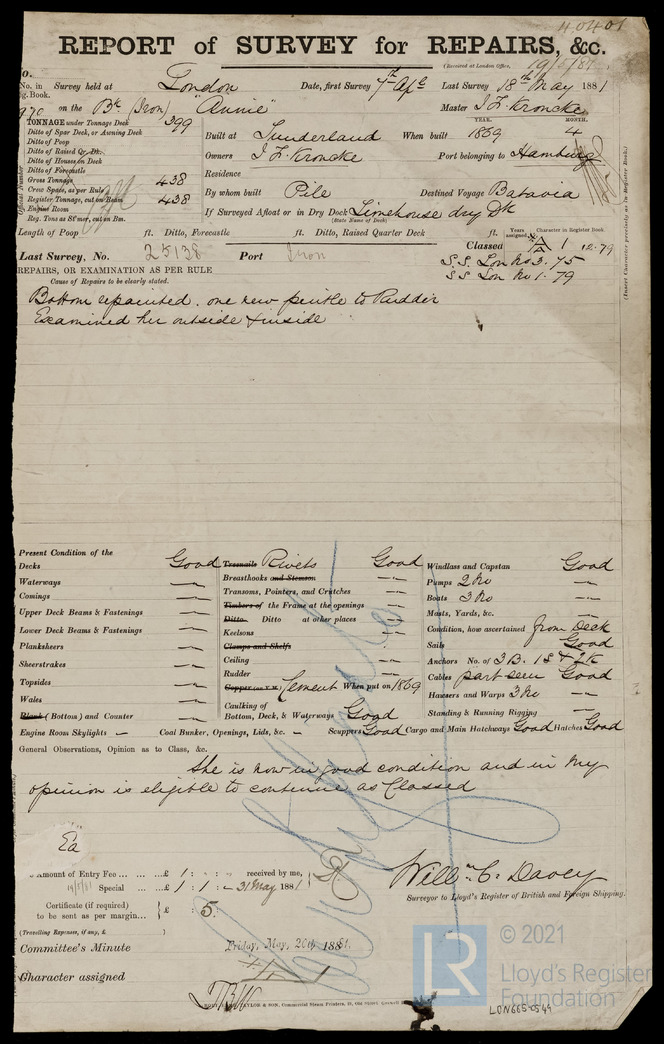 40401
REPORT of SURVEY for REPAIRS, &c.
(Received at London Office, 19/5/81
No. in Survey held at London Date, first Survey 7th Apl Last Survey 18th May 1881
Reg. Book.
970 on the Bk (Iron) "Annie" Master J. F. Kroncke
TONNAGE under Tonnage Deck 399
Ditto of Spar Deck, or Awning Deck
Ditto of Poop
Ditto of Raised Qr. Dk.
Ditto of Houses on Deck
Ditto of Forecastle
Gross Tonnage 438
Crew Space, as per Rule
Register Tonnage, cut on Beam 438
Engine Room
Reg. Tons as St'mer, cut on Bm.
YEAR. MONTH.
Built at Sunderland When built 1869 4
Owners J. F. Kroncke Port belonging to Hamburg
Residence
By whom built Pile Destined Voyage Batavia
If Surveyed Afloat or in Dry Dock Limehouse dry Dk
(State Name of Dock)
Length of Poop ft. Ditto, Forecastle ft. Ditto, Raised Quarter Deck ft.
Years assigned Character in Register Book.
Classed A 1 12.79
S.S. Lon No 3. 75
SS Lon No 1. 79
Last Survey, No. 25138 Port Iron
REPAIRS, OR EXAMINATION AS PER RULE
Cause of Repairs to be clearly stated.
Bottom repainted. one new pintle to Rudder
Examined her outside & inside
(Insert Character precisely as in Register Book.)
Present Condition of the
Decks Good
Waterways
Comings
Upper Deck Beams & Fastenings
Lower Deck Beams & Fastenings
Planksheers
Sheerstrakes
Topsides
Wales
Blank (Bottom) and Counter
Engine Room Skylights
Treenails Rivets Good
Breasthooks and Stemson
Transoms, Pointers, and Crutches
Timbers of the Frame at the openings
Ditto Ditto at other places
Keelsons
Clamps and Shelfs
Ceiling
Rudder
Copper (or Y.M.) Cement When put on 1869
Caulking of
Bottom, Deck, & Waterways Good
Coal Bunker, Openings, Lids, &c. Scuppers Good Cargo and Main Hatchways Good Hatches Good
Windlass and Capstan Good
Pumps 2 No
Boats 3 No
Masts, Yards, &c.
Condition, how ascertained from Deck
Sails Good
Anchors No. of 3 B. 1 S & 2 K
Cables part seen Good
Hawsers and Warps 3 No
Standing & Running Rigging
General Observations, Opinion as to Class, &c.
She is now in good condition and in my
opinion is eligible to continue as Classed
Amount of Entry Fee £ 1 : received by me,
19/5/81 Special £ 1 : 1 : 31 May 1881
Certificate (if required) £ : 5
to be sent as per margin
(Travelling Expenses, if any, £ )
Willm. C. Davey
Surveyor to Lloyd's Register of British and Foreign Shipping.
Committee's Minute Friday, May, 20th 1881.
Character assigned
LR
© 2021
Lloyd's Register
Foundation
LON665-0549